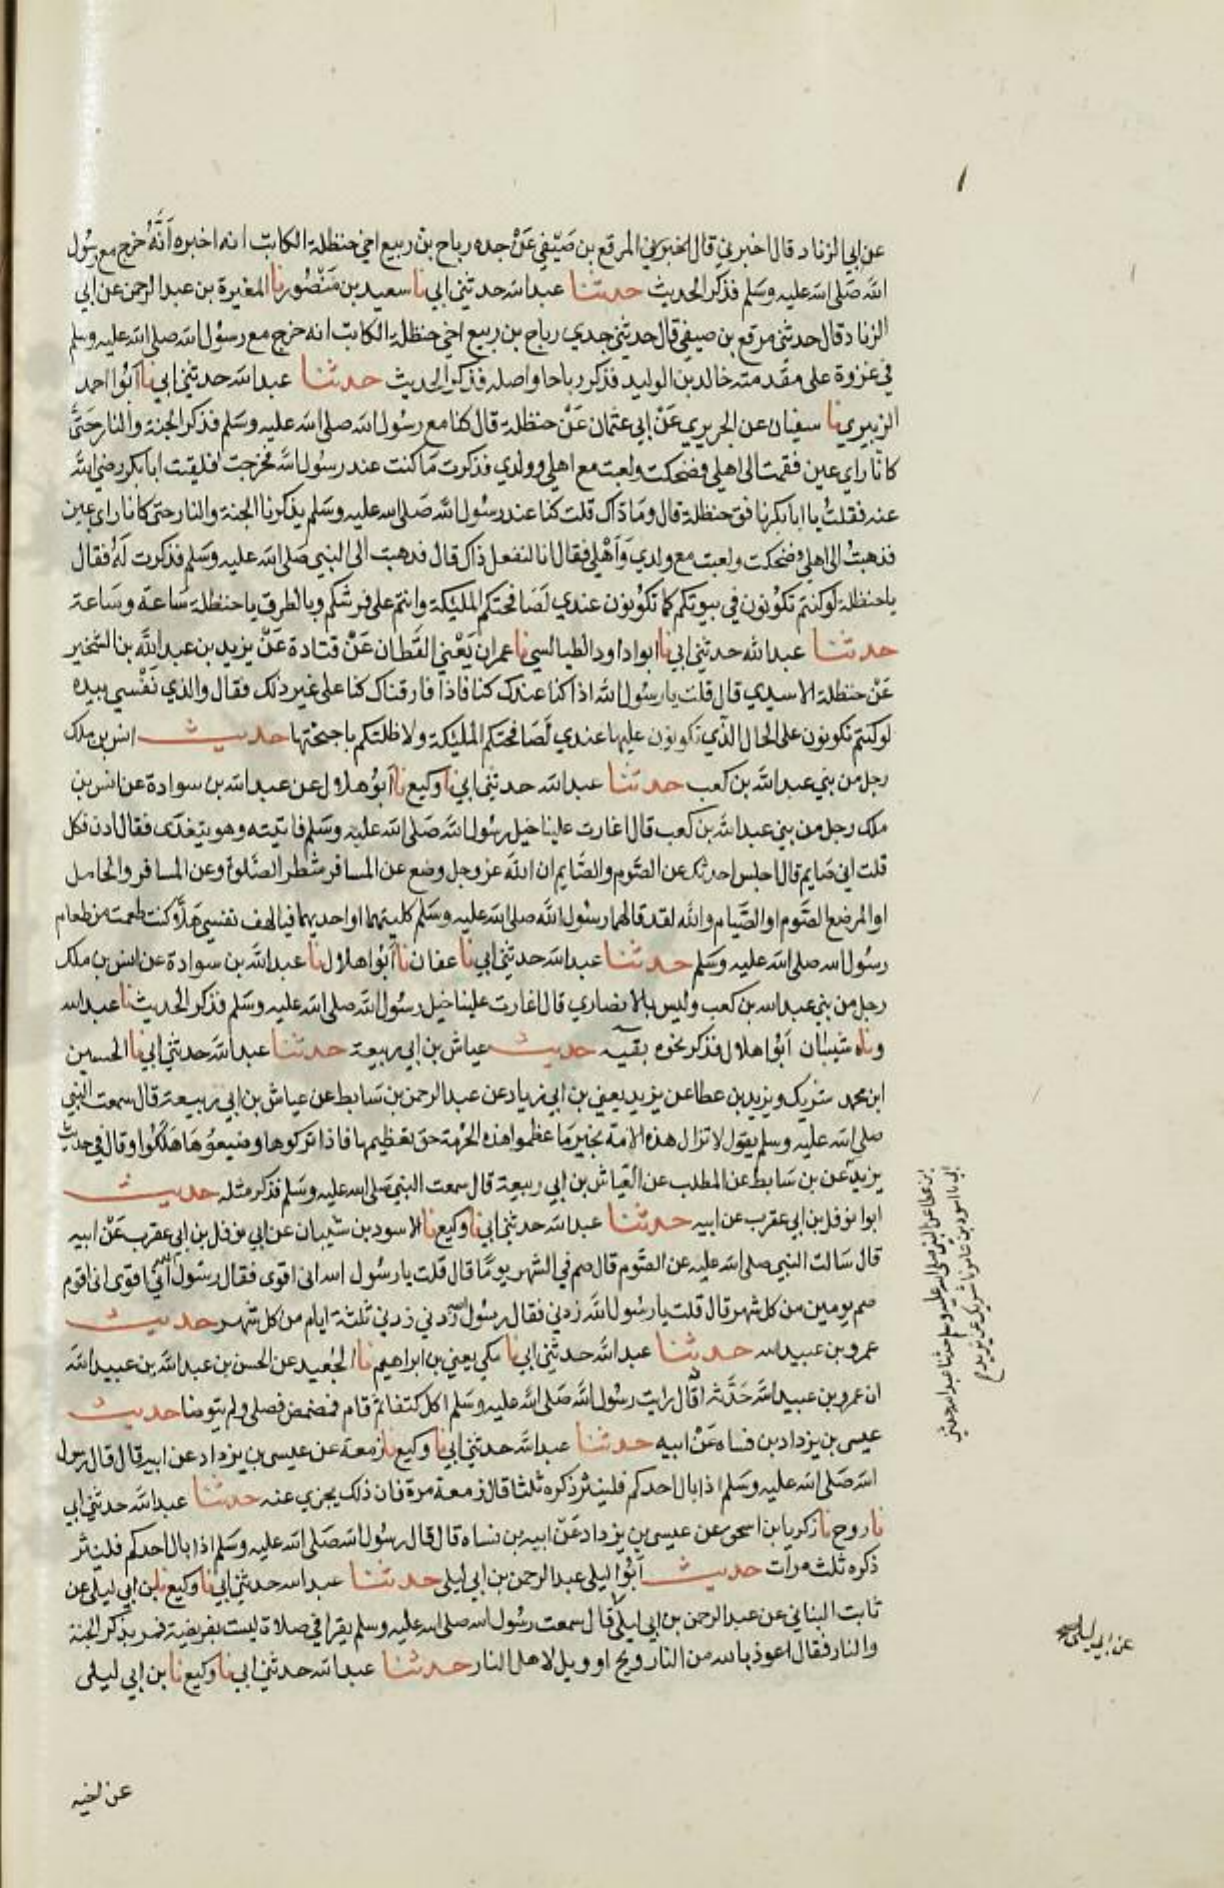 عن ابي الزناد قال اخبرني قال اخبرني المرقع بن صيفي عن جده رباح بن ربيع اخي حنظلة الكاتب انه اخبره انه خرج مع رسول
الله صلى الله عليه وسلم فذكر الحديث حدثنا عبد الله حدثني ابي نا سعيد بن منصور نا المغيرة بن عبد الرحمن عن ابي
الزناد قال حدثني مرقع بن صيفي قال حدثني جدي رباح بن ربيع اخي حنظلة الكاتب انه خرج مع رسول الله صلى الله عليه وسلم
في غزوة على مقدمته خالد بن الوليد فذكر رباحا واصله فذكر الحديث حدثنا عبد الله حدثني ابي نا ابو احمد
الزبيري نا سفيان عن الجريري عن ابي عثمان عن حنظلة قال كنا مع رسول الله صلى الله عليه وسلم فذكر الجنة والنار حتى
كانا راي عين فقمت الى اهلي فضحكت ولعبت مع اهلي وولدي فذكرت ما كنت عند رسول الله فخرجت فلقيت ابا بكر رضي الله
عنه فقلت يا ابا بكر نافق حنظلة قال وما ذاك قلت كنا عند رسول الله صلى الله عليه وسلم يذكرنا الجنة والنار حتى كانا راي عين
فذهبت الى اهلي فضحكت ولعبت مع ولدي واهلي فقال انا لنفعل ذاك قال فذهبت الى النبي صلى الله عليه وسلم فذكرت له فقال
يا حنظلة لو كنتم تكونون في بيوتكم كما تكونون عندي لصافحتكم المليكة وانتم على فرشكم وبالطرق يا حنظلة ساعة وساعة
حدثنا عبد الله حدثني ابي نا ابو داود الطيالسي نا عمران يعني القطان عن قتادة عن يزيد بن عبد الله بن الشخير
عن حنظلة الاسيدي قال قلت يا رسول الله اذا كنا عندك كنا فاذا فارقناك كنا على غير ذلك فقال والذي نفسي بيده
لو كنتم تكونون على الحال الذي تكونون عليها عندي لصافحتكم المليكة ولاظلتكم باجنحتها حديث انس بن ملك
رجل من بني عبد الله بن كعب حدثنا عبد الله حدثني ابي نا وكيع نا ابو هلال عن عبد الله بن سوادة عن انس بن
ملك رجل من بني عبد الله بن كعب قال اغارت علينا خيل رسول الله صلى الله عليه وسلم فاتيته وهو يتغدى فقال ادن فكل
قلت اني صايم قال اجلس احدثك عن الصوم والصايم ان الله عز وجل وضع عن المسافر شطر الصلوة وعن المسافر والحامل
او المرضع الصوم او الصيام والله لقد قالهما رسول الله صلى الله عليه وسلم كليتهما او احديهما فيا لهف نفسي هلا كنت طعمت من طعام
رسول الله صلى الله عليه وسلم حدثنا عبد الله حدثني ابي نا عفان نا ابو هلال نا عبد الله بن سوادة عن انس بن ملك
رجل من بني عبد الله بن كعب وليس بالانصاري قال اغارت علينا خيل رسول الله صلى الله عليه وسلم فذكر الحديث نا عبد الله
وناه شيبان ابو هلال فذكر نحوه بقية حديث عياش بن ابي ربيعة حدثنا عبد الله حدثني ابي نا الحسين
ابن محمد شريك ويزيد بن عطا عن يزيد يعني بن ابي زياد عن عبد الرحمن بن سابط عن عياش بن ابي ربيعة قال سمعت النبي
صلى الله عليه وسلم يقول لا تزال هذه الامة بخير ما عظموا هذه الحرمة حق تعظيمها فاذا تركوها وضيعوها هلكوا وقال في حديث
يزيد عن بن سابط عن المطلب عن العياش بن ابي ربيعة قال سمعت النبي صلى الله عليه وسلم فذكر مثله حديث
ابوا نوفل بن ابي عقرب عن ابيه حدثنا عبد الله حدثني ابي نا وكيع نا الاسود بن شيبان عن ابي نوفل بن ابي عقرب عن ابيه
قال سالت النبي صلى الله عليه عن الصوم قال صم في الشهر يوما قال قلت يا رسول الله اني اقوى فقال رسول الله اني اقوى اني اقوم
صم يومين من كل شهر قال قلت يا رسول الله زدني فقال رسول الله زدني زدني ثلثة ايام من كل شهر حديث
عمرو بن عبيد الله حدثنا عبد الله حدثني ابي نا مكي يعني بن ابراهيم نا الجعيد عن الحسن بن عبد الله بن عبيد الله
ان عمرو بن عبيد الله حدثه قال رايت رسول الله صلى الله عليه وسلم اكل كتفا ثم قام فمضمض فصلى ولم يتوضا حديث
عيسى بن يزداد بن فساه عن ابيه حدثنا عبد الله حدثني ابي نا وكيع نا زمعة عن عيسى بن يزداد عن ابيه قال قال رسول
الله صلى الله عليه وسلم اذا بال احدكم فلينثر ذكره ثلثا قال زمعة مرة فان ذلك يجزي عنه حدثنا عبد الله حدثني ابي
نا روح نا زكريا بن اسحق عن عيسى بن يزداد عن ابيه بن فساه قال قال رسول الله صلى الله عليه وسلم اذا بال احدكم فلينثر
ذكره ثلث مرات حديث ابوا ليلى عبد الرحمن بن ابي ليلى حدثنا عبد الله حدثني ابي نا وكيع نا بن ابي ليلى عن
ثابت البناني عن عبد الرحمن بن ابي ليلى قال سمعت رسول الله صلى الله عليه وسلم يقرا في صلاة ليست بفريضة فمر بذكر الجنة
والنار فقال اعوذ بالله من النار ويح او ويل لاهل النار حدثنا عبد الله حدثني ابي نا وكيع نا بن ابي ليلى
عن ابي ليلى
عن اخيه